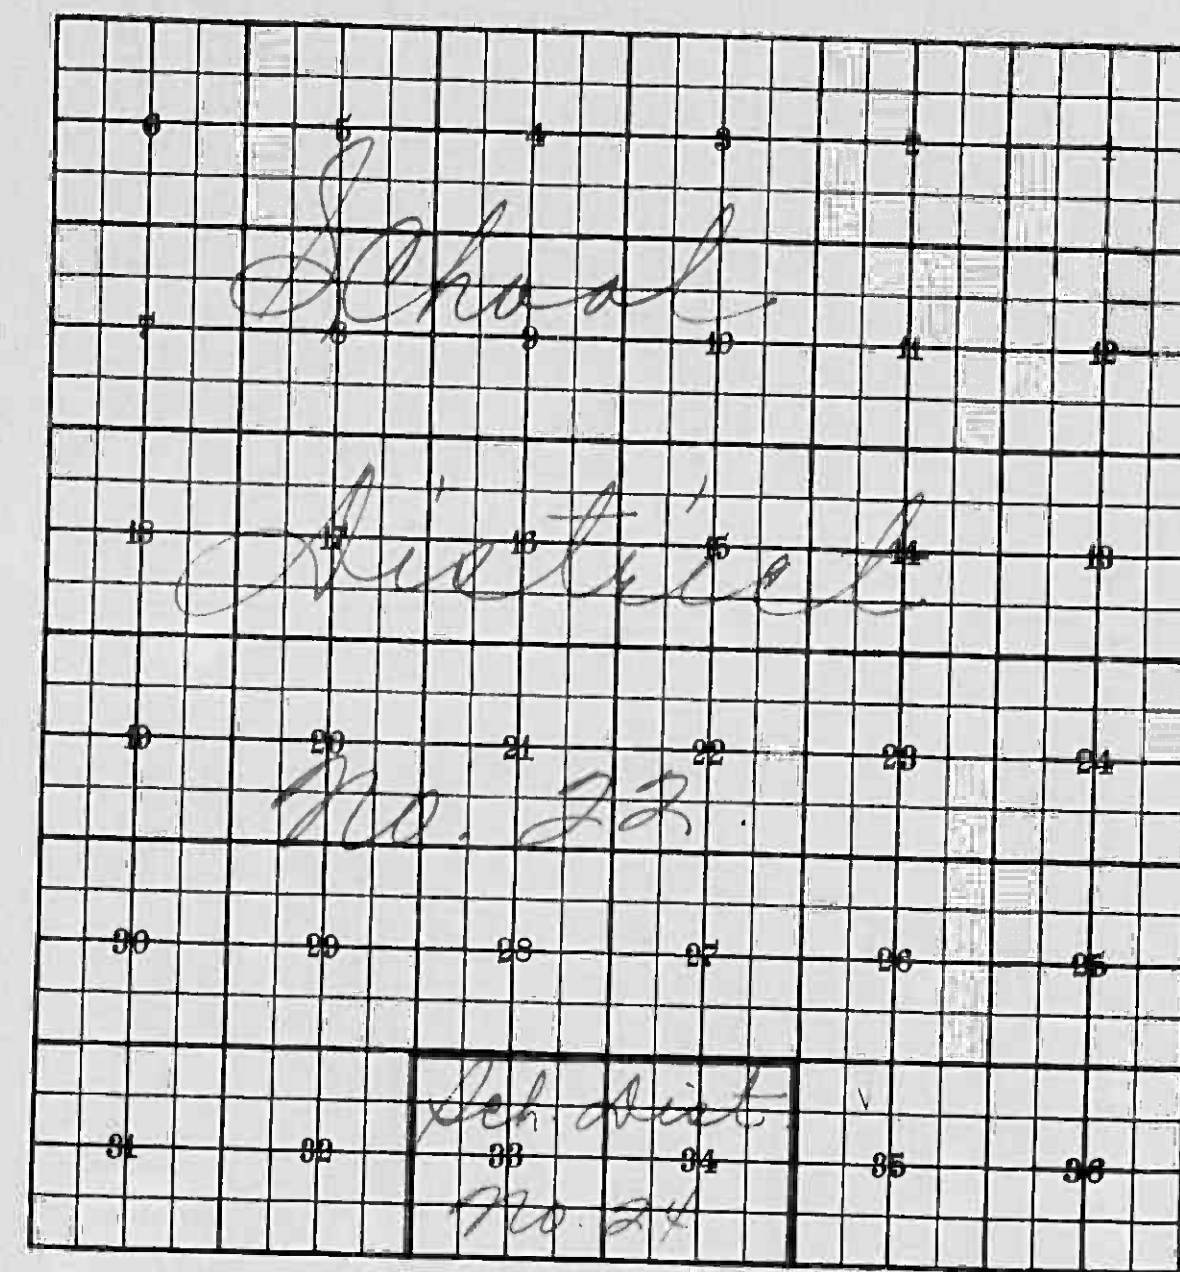 6 5 4 3 2 1
School
7 8 9 10 11 12
District
18 17 16 15 14 13
19 20 21 22 23 24
No. 22.
30 29 28 27 26 25
Sch Dist
31 32 33 34 35 36
No. 24